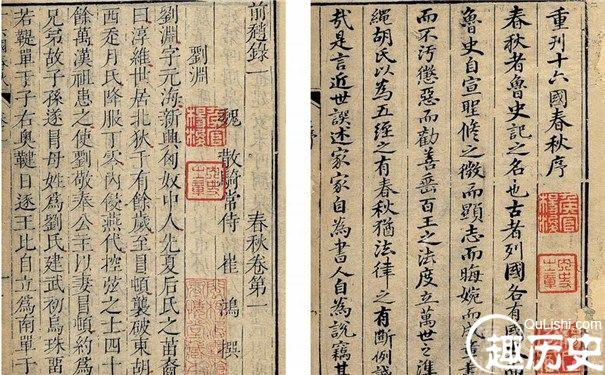 重刊十六國春秋序
春秋者魯史記之名也古者列國各有國
魯史自宣聖脩之微而顯志而晦婉而成章
而不汚懲惡而勸善垂百王之法度立萬世之準
繩胡氏以為五經之有春秋猶法律之有斷例誠
哉是言近世誤述家家自為書人自為說竊其
侯官楊浚
前趙錄一 春秋卷第一
魏 散騎常侍 崔鴻 撰
劉淵
劉淵字元海新興匈奴中人先夏后氏之苗裔
曰淳維世居北狄千有餘歲至冒頓襲破東胡
西走月氏降服丁零內侵燕代控弦之士四十
餘萬漢祖患之使劉敬奉公主以妻冒頓約為
兄弟故子孫遂冒母姓爲劉氏建武初烏珠留
若鞮單于子右奧鞬日逐王比自立爲南單于
侯官楊浚
QuLishi.com
趣历史